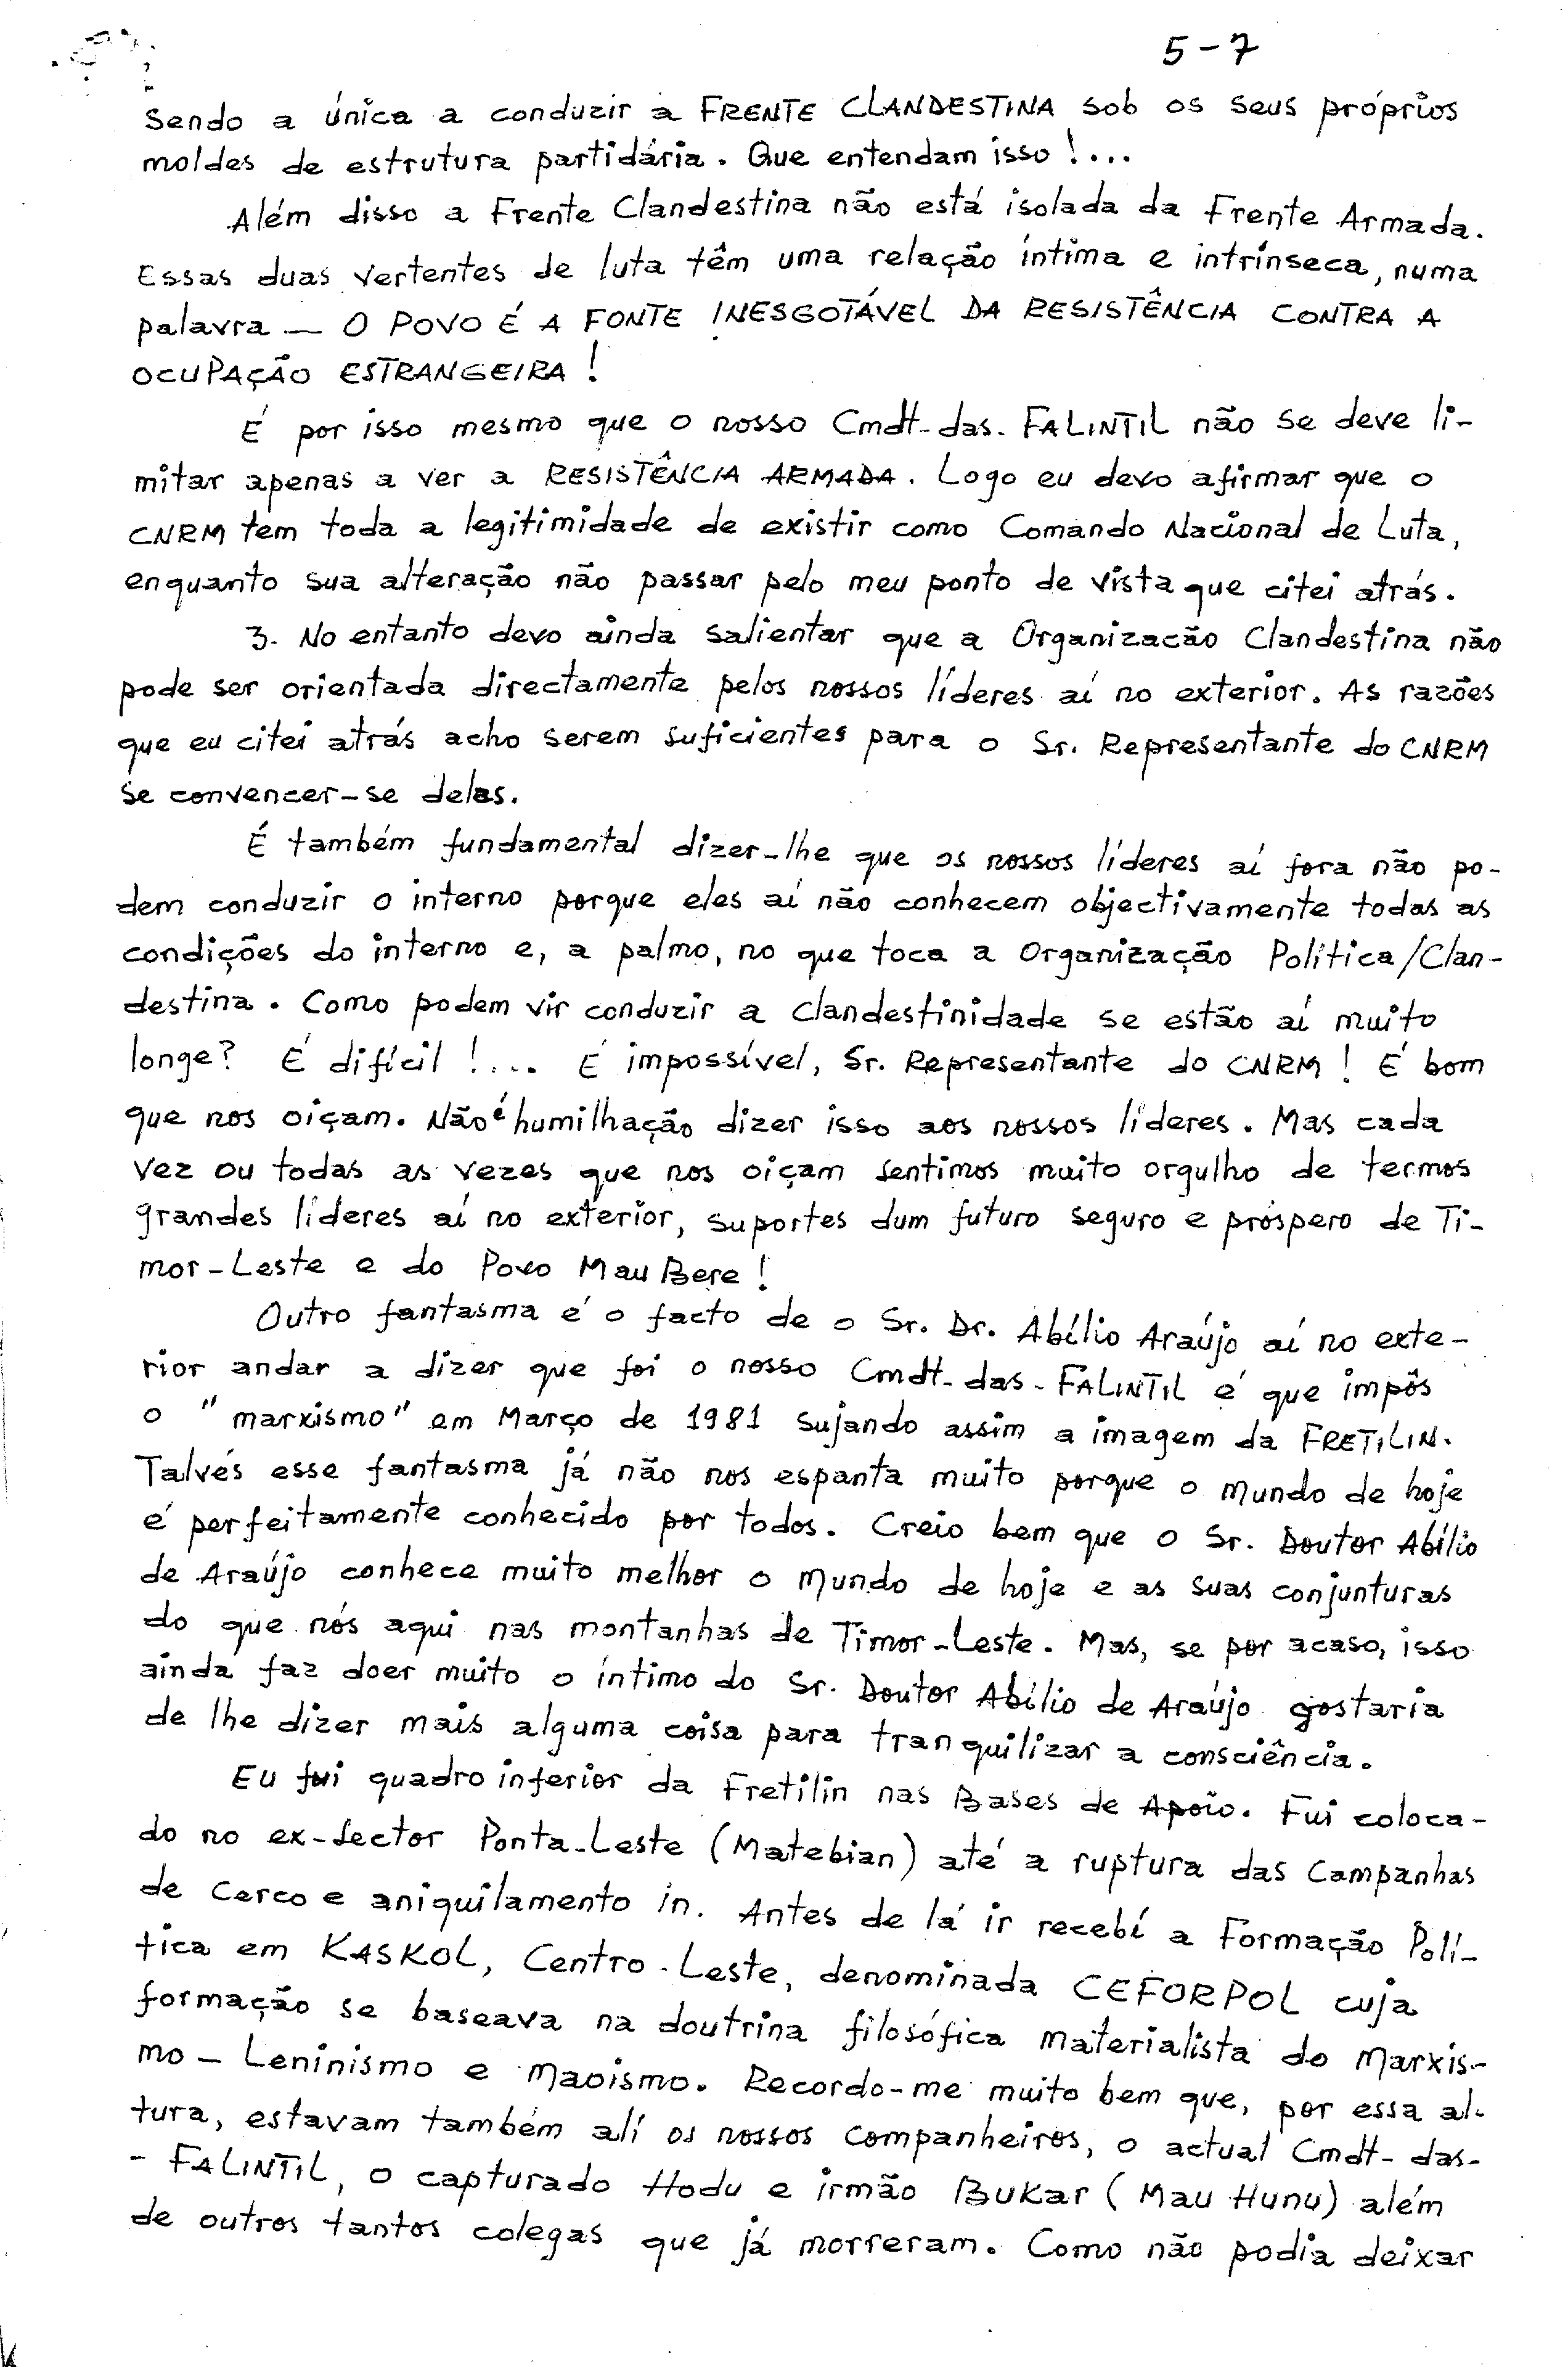 5-7
sendo a única a conduzir a FRENTE CLANDESTINA sob os seus próprios
moldes de estrutura partidária. Que entendam isso!...
Além disso a Frente Clandestina não está isolada da Frente Armada.
Essas duas vertentes de luta têm uma relação íntima e intrínseca, numa
palavra — O POVO É A FONTE INESGOTÁVEL DA RESISTÊNCIA CONTRA A
OCUPAÇÃO ESTRANGEIRA!
É por isso mesmo que o nosso Cmdt-das-FALINTIL não se deve li-
mitar apenas a ver a RESISTÊNCIA ARMADA. Logo eu devo afirmar que o
CNRM tem toda a legitimidade de existir como Comando Nacional de Luta,
enquanto sua alteração não passar pelo meu ponto de vista que citei atrás.
3. No entanto devo ainda salientar que a Organizacão Clandestina não
pode ser orientada directamente pelos nossos líderes aí no exterior. As razões
que eu citei atrás acho serem suficientes para o Sr. Representante do CNRM
se convencer-se delas.
É também fundamental dizer-lhe que os nossos líderes aí fora não po-
dem conduzir o interno porque eles aí não conhecem objectivamente todas as
condições do interno e, a palmo, no que toca a Organização Política/Clan-
destina. Como podem vir conduzir a clandestinidade se estão aí muito
longe? É difícil!... É impossível, Sr. Representante do CNRM! É bom
que nos oiçam. Não é humilhação dizer isso aos nossos líderes. Mas cada
vez ou todas as vezes que nos oiçam sentimos muito orgulho de termos
grandes líderes aí no exterior, suportes dum futuro seguro e próspero de Ti-
mor-Leste e do Povo Mau Bere!
Outro fantasma é o facto de o Sr. Dr. Abílio Araújo aí no exte-
rior andar a dizer que foi o nosso Cmdt-das-FALINTIL é que impôs
o "marxismo" em Março de 1981 sujando assim a imagem da FRETILIN.
Talvés esse fantasma já não nos espanta muito porque o mundo de hoje
é perfeitamente conhecido por todos. Creio bem que o Sr. Doutor Abílio
de Araújo conhece muito melhor o mundo de hoje e as suas conjunturas
do que nós aqui nas montanhas de Timor-Leste. Mas, se por acaso, isso
ainda faz doer muito o íntimo do Sr. Doutor Abílio de Araújo gostaria
de lhe dizer mais alguma coisa para tranquilizar a consciência.
Eu fui quadro inferior da Fretilin nas Bases de Apoio. Fui coloca-
do no ex-sector Ponta-Leste (Matebian) até a ruptura das Campanhas
de Cerco e aniquilamento in. Antes de lá ir recebí a Formação Polí-
tica em KASKOL, Centro-Leste, denominada CEFORPOL cuja
formação se baseava na doutrina filosófica materialista do Marxis-
mo-Leninismo e Maoismo. Recordo-me muito bem que, por essa al-
tura, estavam também alí os nossos companheiros, o actual Cmdt-das-
-FALINTIL, o capturado Hodu e irmão BUKAR (Mau Hunu) além
de outros tantos colegas que já morreram. Como não podia deixar